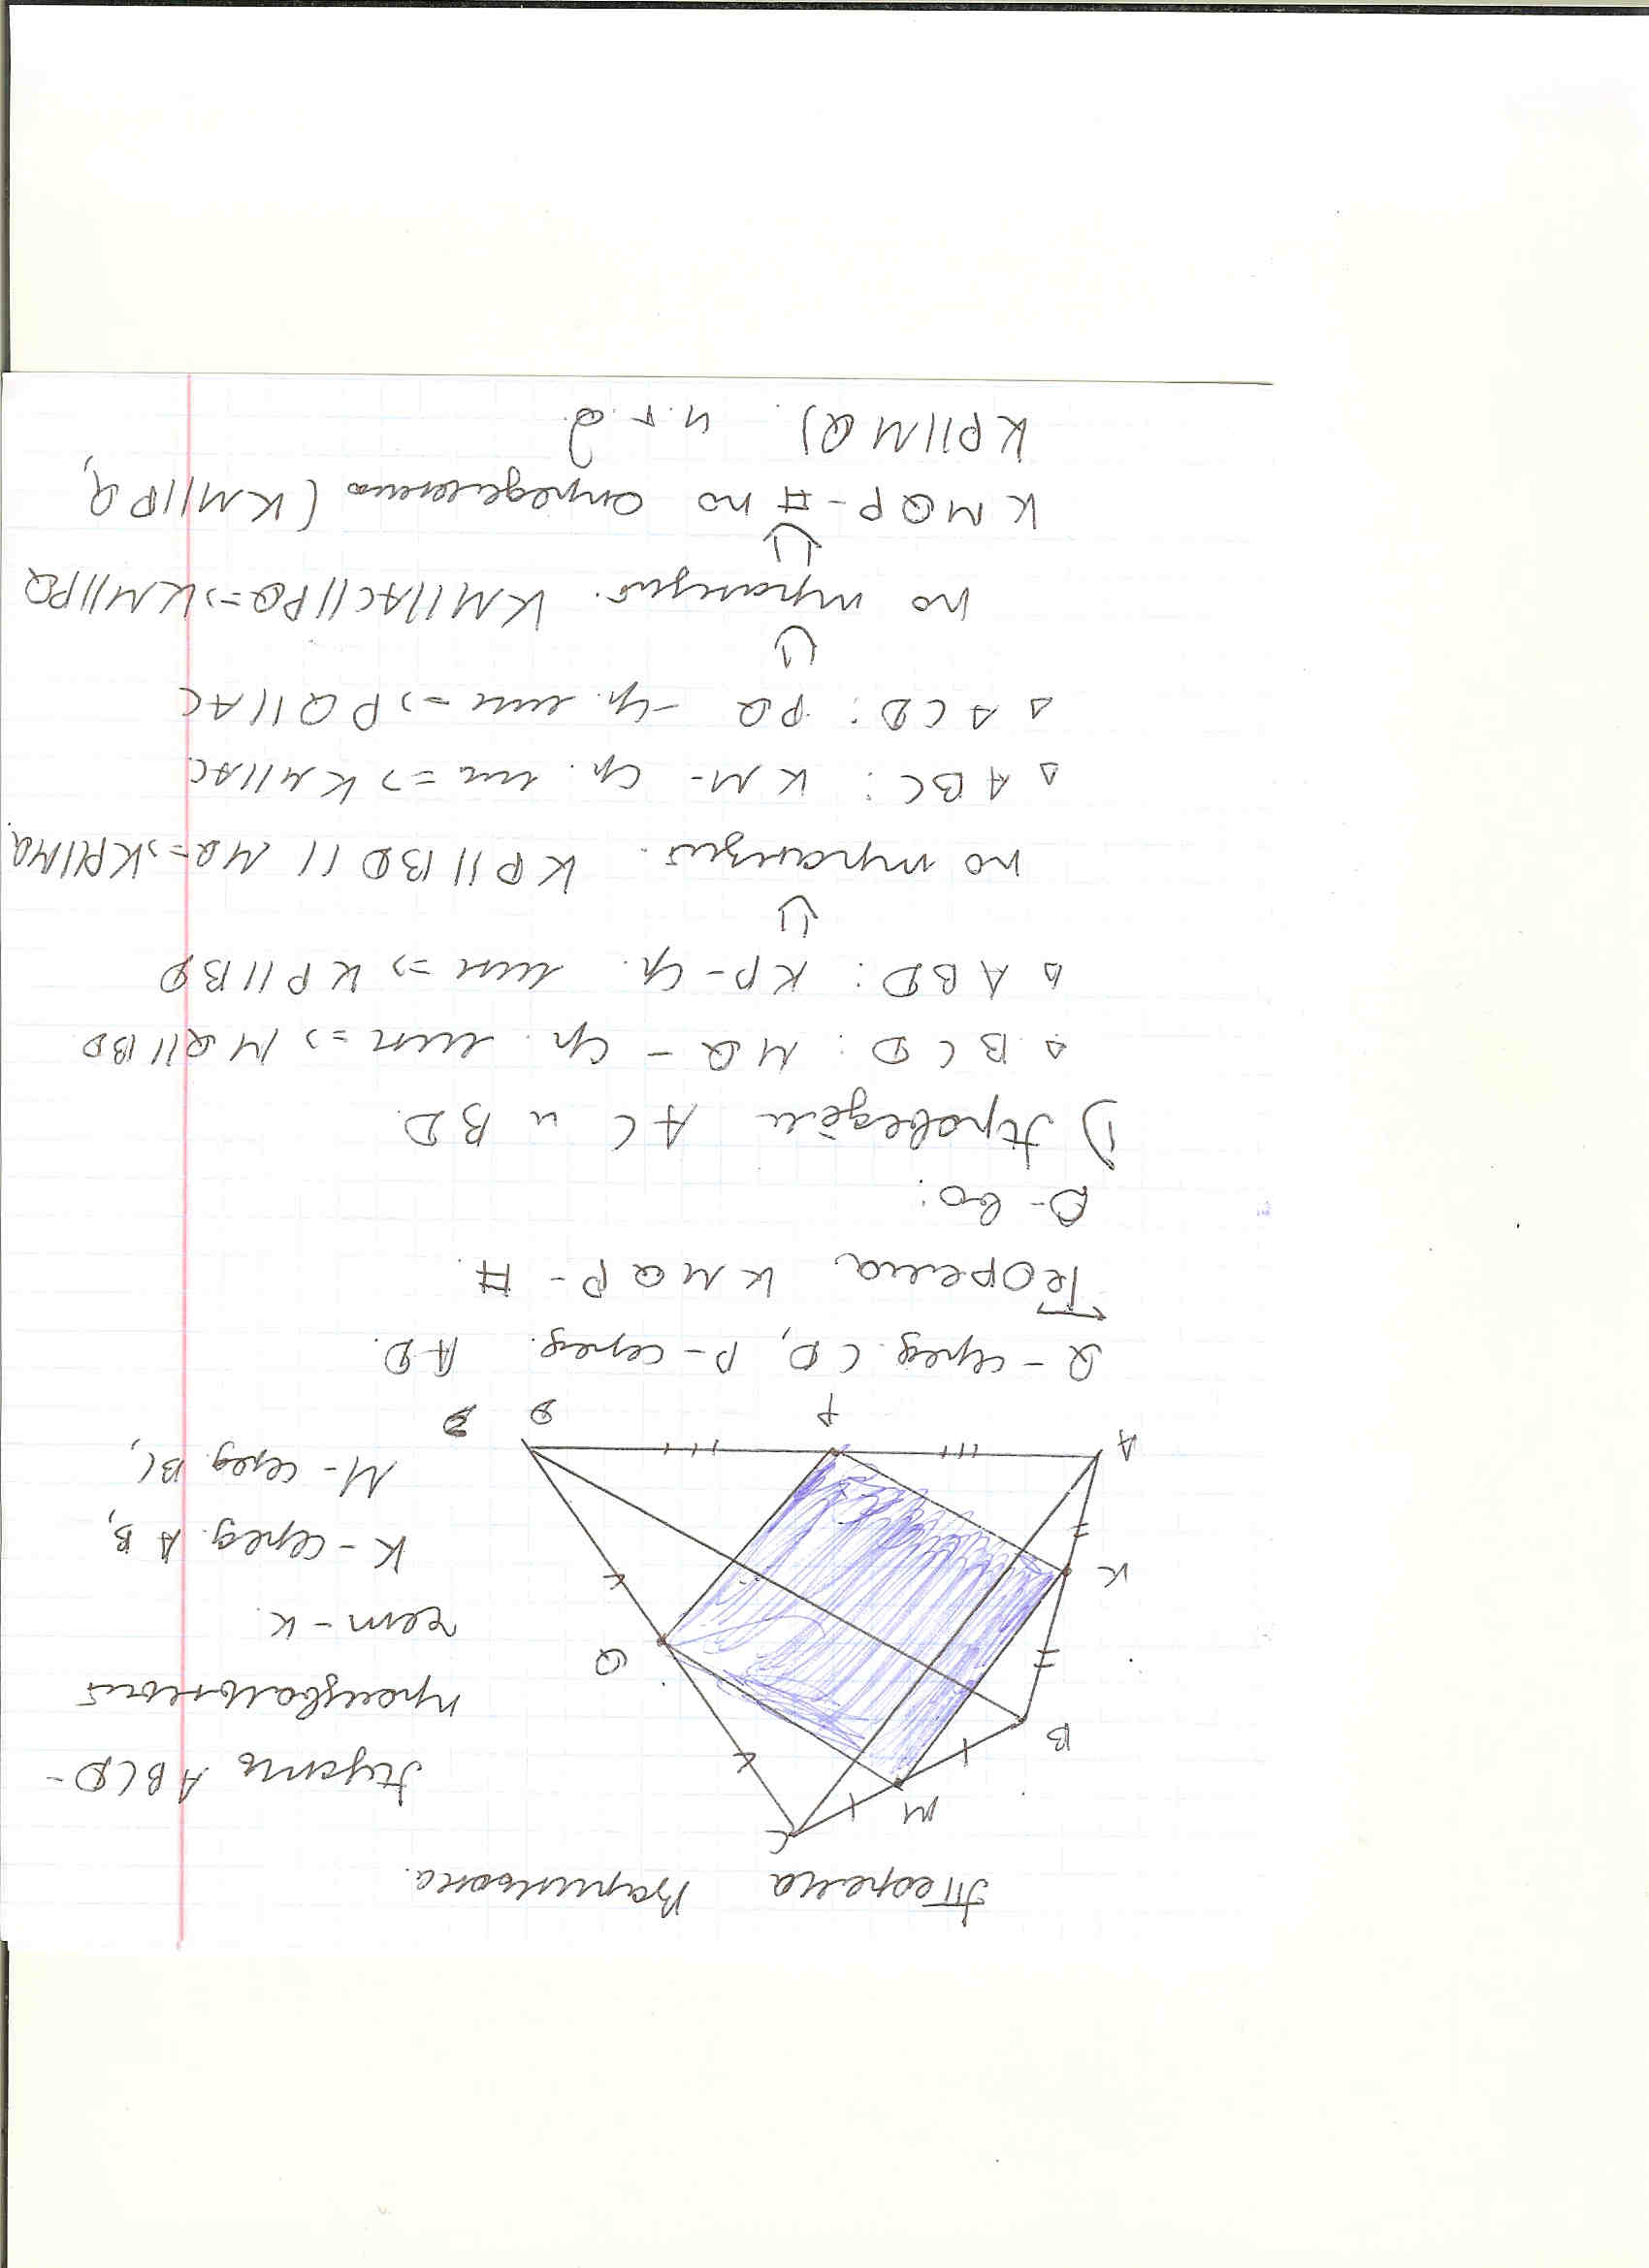 Теорема Вариньона.
C
M
B
Q
K
A
P
D
Пусть ABCD -
произвольный
чет-к.
K - серед. AB,
M - серед. BC,
Q - серед. CD, P - серед. AD.
Теорема KMQP - #.
Д-во:
1) Проведём AC и BD.
△ BCD: MQ - ср. лин => MQ||BD
△ ABD: KP - ср. лин => KP||BD
⇓
по транзит. KP||BD||MQ => KP||MQ.
△ ABC: KM - ср. лин => KM||AC
△ ACD: PQ - ср. лин => PQ||AC
⇓
по транзит. KM||AC||PQ => KM||PQ
⇓
KMQP - # по определению (KM||PQ,
KP||MQ). ч.т.д.